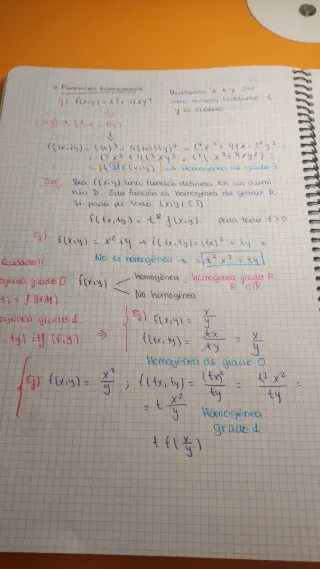 * Funciones homogéneas:
Multiplico x e y por
una misma constante t
y la evalúo.
Ej) f(x,y) = x³ + 4xy²
(x,y) → (tx, ty)
f(tx, ty) = (tx)³ + 4(tx)(ty)² = t³x³ + 4tx · t²y² =
= t³x³ + 4t³xy² = t³(x³ + 4xy²) =
= t³ f(x,y) → homogénea de grado 3
Def: Sea f(x,y) una función definida en un
D. Esta función es homogénea de grado R
si para todo (x,y) ∈ D
f(tx, ty) = t^R f(x,y). para todo t > 0
Ej) f(x,y) = x² + y → f(tx, ty) = (tx)² + ty =
No es homogénea → = t²x² + ty
Cuidado!!
ogénea grado 0
f(x,y)
homogénea, homogénea grado R
R ∈ ℝ
No homogénea
ogénea grado 1
, ty) = t f(x,y) ⇒
Ej) f(x,y) = x/y
f(tx, ty) = tx/ty = x/y
Homogénea de grado 0
Ej) f(x,y) = x²/y ; f(tx, ty) = (tx)²/ty = t²x²/ty =
= t x²/y
Homogénea
grado 1
t f(x/y)